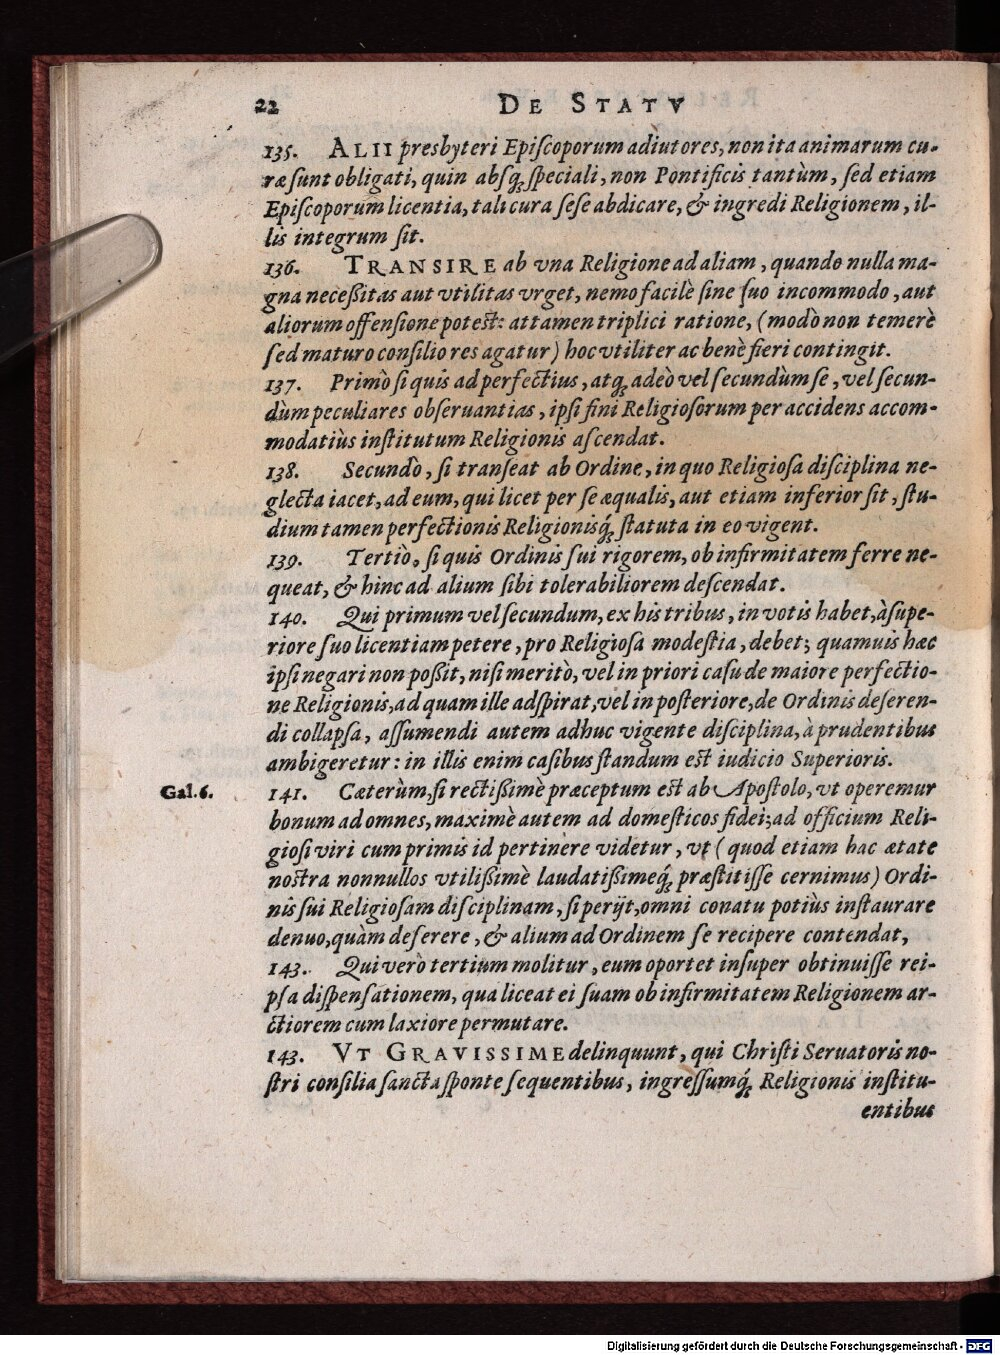 22 DE STATV
135. ALII presbyteri Epiſcoporum adiutores, non ita animarum cu-
ræ ſunt obligati, quin abſq; ſpeciali, non Pontificis tantùm, ſed etiam
Epiſcoporum licentia, tali cura ſeſe abdicare, & ingredi Religionem, il-
lis integrum ſit.
136. TRANSIRE ab vna Religione ad aliam, quando nulla ma-
gna neceßitas aut vtilitas vrget, nemo facilè ſine ſuo incommodo, aut
aliorum offenſione poteſt: attamen triplici ratione, (modò non temerè
ſed maturo conſilio res agatur) hoc vtiliter ac benè fieri contingit.
137. Primò ſi quis ad perfectius, atq; adeò vel ſecundùm ſe, vel ſecun-
dùm peculiares obſeruantias, ipſi fini Religioſorum per accidens accom-
modatiùs inſtitutum Religionis aſcendat.
138. Secundò, ſi tranſeat ab Ordine, in quo Religioſa diſciplina ne-
glecta iacet, ad eum, qui licet per ſe æqualis, aut etiam inferior ſit, ſtu-
dium tamen perfectionis Religionisq́; ſtatuta in eo vigent.
139. Tertiò, ſi quis Ordinis ſui rigorem, ob infirmitatem ferre ne-
queat, & hinc ad alium ſibi tolerabiliorem deſcendat.
140. Qui primum vel ſecundum, ex his tribus, in votis habet, à ſupe-
riore ſuo licentiam petere, pro Religioſa modeſtia, debet; quamuis hæc
ipſi negari non poßit, niſi meritò, vel in priori caſu de maiore perfectio-
ne Religionis, ad quam ille adſpirat, vel in poſteriore, de Ordinis deſeren-
di collapſa, aſſumendi autem adhuc vigente diſciplina, à prudentibus
ambigeretur: in illis enim caſibus ſtandum eſt iudicio Superioris.
Gal. 6. 141. Cæterùm, ſi rectißimè præceptum eſt ab Apoſtolo, vt operemur
bonum ad omnes, maximè autem ad domeſticos fidei; ad officium Reli-
gioſi viri cum primis id pertinere videtur, vt (quod etiam hac ætate
noſtra nonnullos vtilißimè laudatißimeq́; præſtitiſſe cernimus) Ordi-
nis ſui Religioſam diſciplinam, ſi perijt, omni conatu potiùs inſtaurare
denuo, quàm deſerere, & alium ad Ordinem ſe recipere contendat,
143. Qui verò tertium molitur, eum oportet inſuper obtinuiſſe rei-
pſa diſpenſationem, qua liceat ei ſuam ob infirmitatem Religionem ar-
ctiorem cum laxiore permutare.
143. VT GRAVISSIME delinquunt, qui Chriſti Seruatoris no-
ſtri conſilia ſancta ſponte ſequentibus, ingreſſumq́; Religionis inſtitu-
entibus
Digitalisierung gefördert durch die Deutsche Forschungsgemeinschaft - DFG